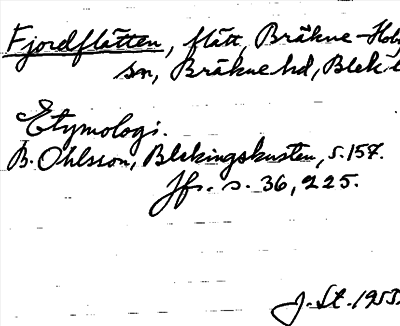 Fjordflätten, flätt, Bräkne-Hoby
sn, Bräkne hd, Blek l
Etymologi.
B. Ohlsson, Blekingskusten, s. 157.
Jfr. s. 36, 225.
J. St. 1953